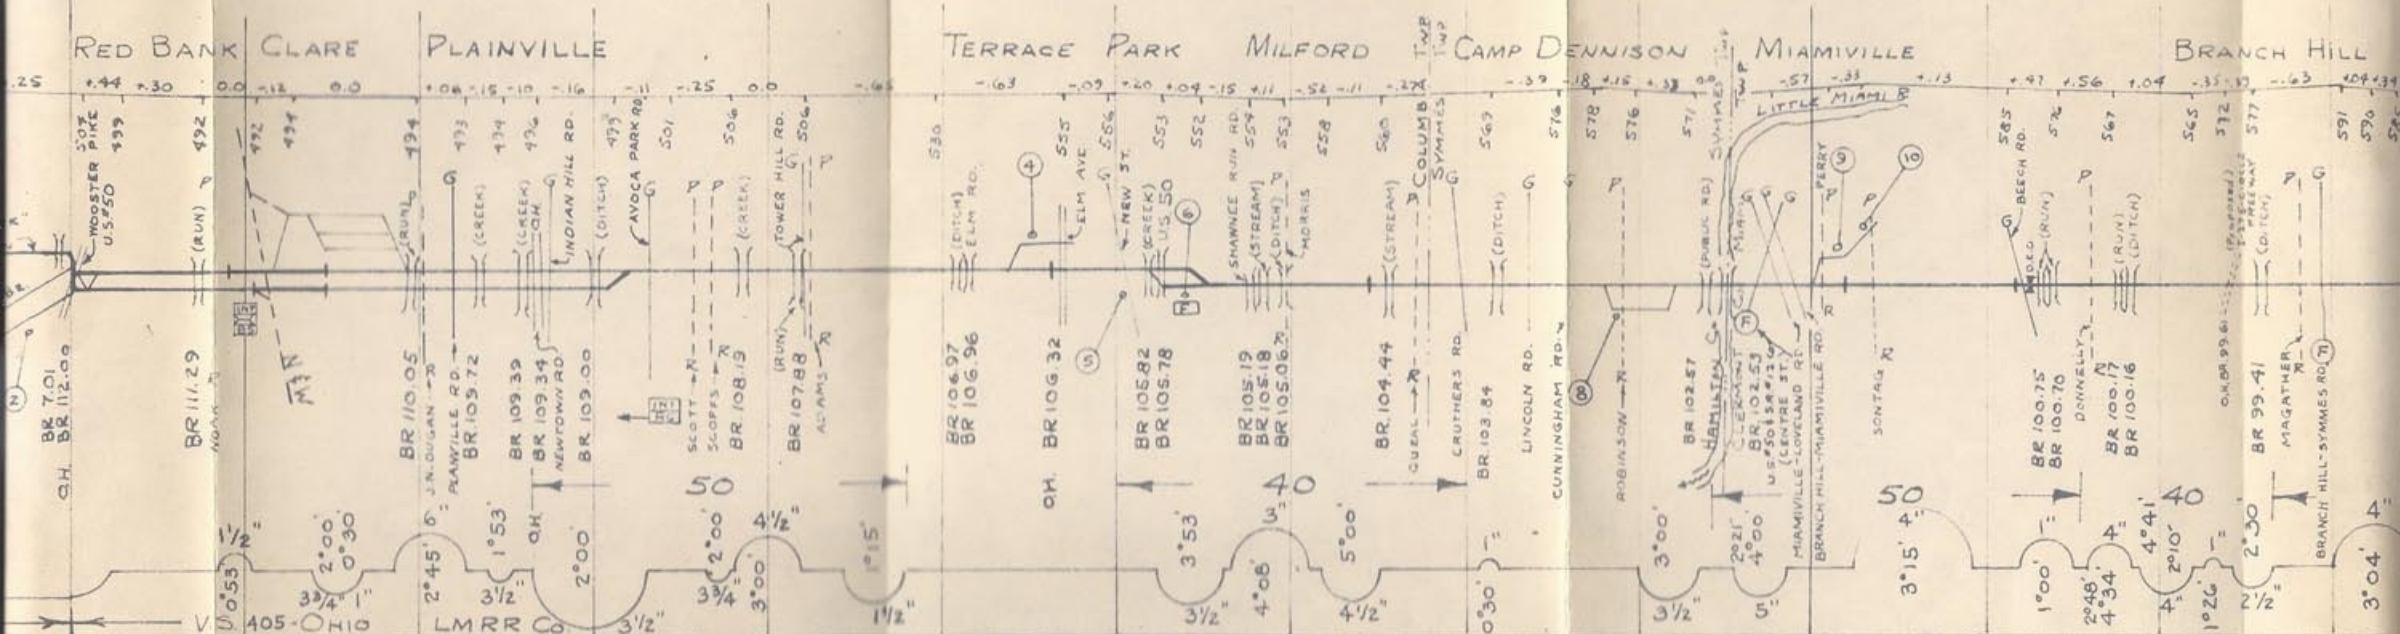 RED BANK CLARE PLAINVILLE TERRACE PARK MILFORD CAMP DENNISON MIAMIVILLE BRANCH HILL
.25 +.44 +.30 0.0 -.12 0.0 +.06 -.15 -.10 -.16 -.11 -.25 0.0 -.65 -.63 -.09 +.20 +.04 -.15 +.11 -.52 -.11 -.27 -.39 -.18 +.15 +.38 0.0 -.57 -.33 +.13 +.47 +.56 +.04 -.35 -.63 +.04 +.34
507 499 492 492 494 494 493 494 496 499 501 506 506 530 555 556 553 552 554 553 558 560 569 576 578 576 571 585 576 567 565 572 577 591 590
WOOSTER PIKE
U.S.#50
(RUN)
(RUN)
(CREEK)
(CREEK)
O.H.
INDIAN HILL RD.
(DITCH)
AVOCA PARK RD.
(CREEK)
TOWER HILL RD.
(DITCH)
ELM RD.
4
ELM AVE
NEW ST.
(CREEK)
U.S. 50
6
SHAWNEE RUN RD.
(STREAM)
(DITCH)
MORRIS
(STREAM)
COLUMBIA TWP
SYMMES TWP
(DITCH)
(PUBLIC RD.)
SYMMES TWP
MIAMI TWP
LITTLE MIAMI R
PERRY
9
10
BEECH RD.
(RUN)
(RUN)
(DITCH)
(PROPOSED)
FREEWAY
(DITCH)
2
BR 7.01
O.H. BR 112.00
BR 111.29
BR 110.05
J.N. DUGAN
PLAINVILLE RD.
BR. 109.72
BR 109.39
BR 109.34
NEWTOWN RD
BR 109.00
O.H.
SCOTT
SCOFFS
BR. 108.19
(RUN)
BR 107.88
ADAMS
BR 106.97
BR 106.96
O.H. BR 106.32
5
BR 105.82
BR 105.78
BR 105.19
BR 105.18
BR 105.06
BR. 104.44
QUEAL
CRUTHERS RD.
BR. 103.84
LINCOLN RD.
CUNNINGHAM RD.
8
ROBINSON
BR 102.57
HAMILTON CO.
CLERMONT CO.
BR. 102.53
(CENTRE ST.)
MIAMIVILLE-LOVELAND RD.
BRANCH HILL-MIAMIVILLE RD.
SONTAG
BR 100.75
BR 100.70
DONNELLY
BR 100.17
BR 100.16
O.H. BR. 99.61
BR 99.41
MAGATHER
BRANCH HILL-SYMMES RD.
11
50 40 50 40
1½" 6" 4½" 3" 1" 4" 1" 4" 1" 4"
0°53' 2°00' 0°30' 2°45' 1°53' 2°00' 2°00' 3°00' 1°15' 3°53' 4°08' 5°00' 0°30' 3°00' 2°21' 4°00' 3°15' 1°00' 2°48' 4°34' 4°41' 2°10' 1°26' 2°30' 3°04'
3¾" 1" 3½" 3½" 3¾" 1½" 3½" 4½" 3½" 5" 4" 2½"
V.S. 405-OHIO LMRR Co.